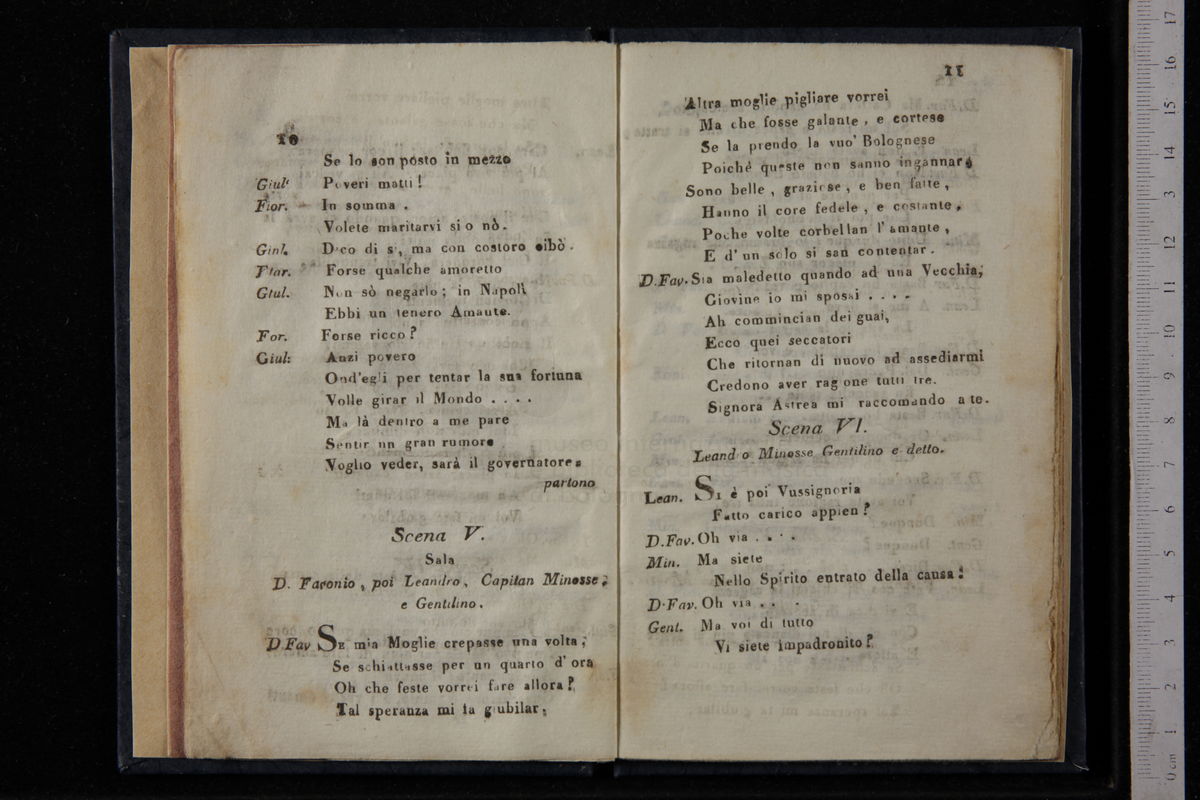 10
Se lo son posto in mezzo
Giul. Poveri matti!
Fior. In somma.
Volete maritarvi si o nò.
Giul. Dico di sì, ma con costoro oibò.
Fior. Forse qualche amoretto
Giul. Non sò negarlo; in Napoli
Ebbi un tenero Amante.
For. Forse ricco?
Giul: Anzi povero
Ond'egli per tentar la sua fortuna
Volle girar il Mondo . . . .
Ma là dentro a me pare
Sentir un gran rumore
Voglio veder, sarà il governatore.
partono
Scena V.
Sala
D. Favonio, poi Leandro, Capitan Minosse,
e Gentilino.
D.Fav SE mia Moglie crepasse una volta,
Se schiattasse per un quarto d'ora
Oh che feste vorrei fare allora?
Tal speranza mi fa giubilar,
11
Altra moglie pigliare vorrei
Ma che fosse galante, e cortese
Se la prendo la vuo' Bolognese
Poichè queste non sanno ingannar,
Sono belle, graziose, e ben fatte,
Hanno il core fedele, e costante,
Poche volte corbellan l'amante,
E d'un solo si san contentar.
D.Fav. Sia maledetto quando ad una Vecchia,
Giovine io mi sposai . . . .
Ah commincian dei guai,
Ecco quei seccatori
Che ritornan di nuovo ad assediarmi
Credono aver ragione tutti tre.
Signora Astrea mi raccomando a te.
Scena VI.
Leandro Minosse Gentilino e detto.
Lean. SI è poi Vussignoria
Fatto carico appien?
D.Fav. Oh via . . . .
Min. Ma siete
Nello Spirito entrato della causa?
D.Fav. Oh via . . .
Gent. Ma voi di tutto
Vi siete impadronito?
0 cm 1 2 3 4 5 6 7 8 9 10 11 12 13 14 15 16 17